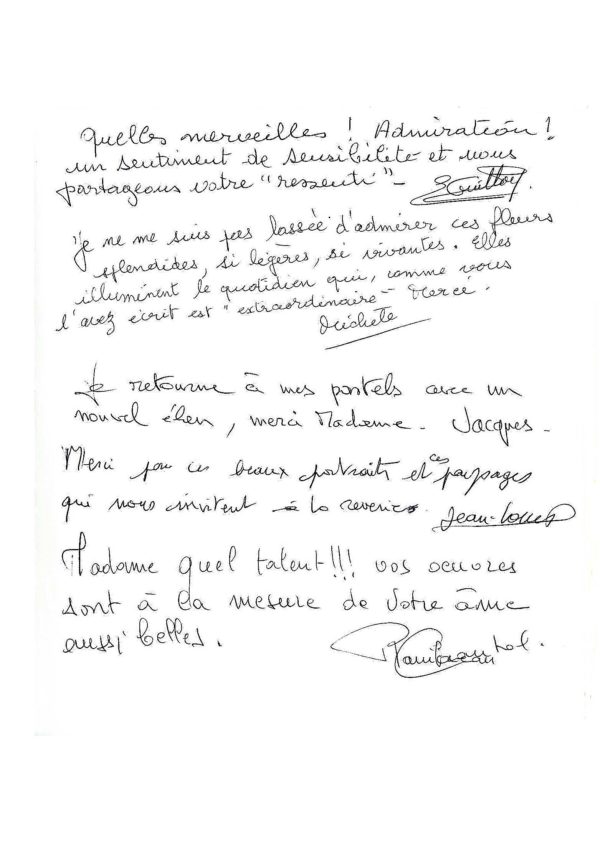 Quelles merveilles ! Admiration !
un sentiment de sensibilité et nous
partageons votre "ressenti" -
Je ne me suis pas lassée d'admirer ces fleurs
splendides, si légères, si vivantes. Elles
illuminent le quotidien qui, comme vous
l'avez écrit est "extraordinaire - Merci.
Michèle
Je retourne à mes pastels avec un
nouvel élan, merci Madame - Jacques -
Merci pour ces beaux portraits et ces paysages
qui nous invitent à la reverie. Jean-Louis
Madame quel talent !!! vos oeuvres
sont à la mesure de votre âme
aussi belles.